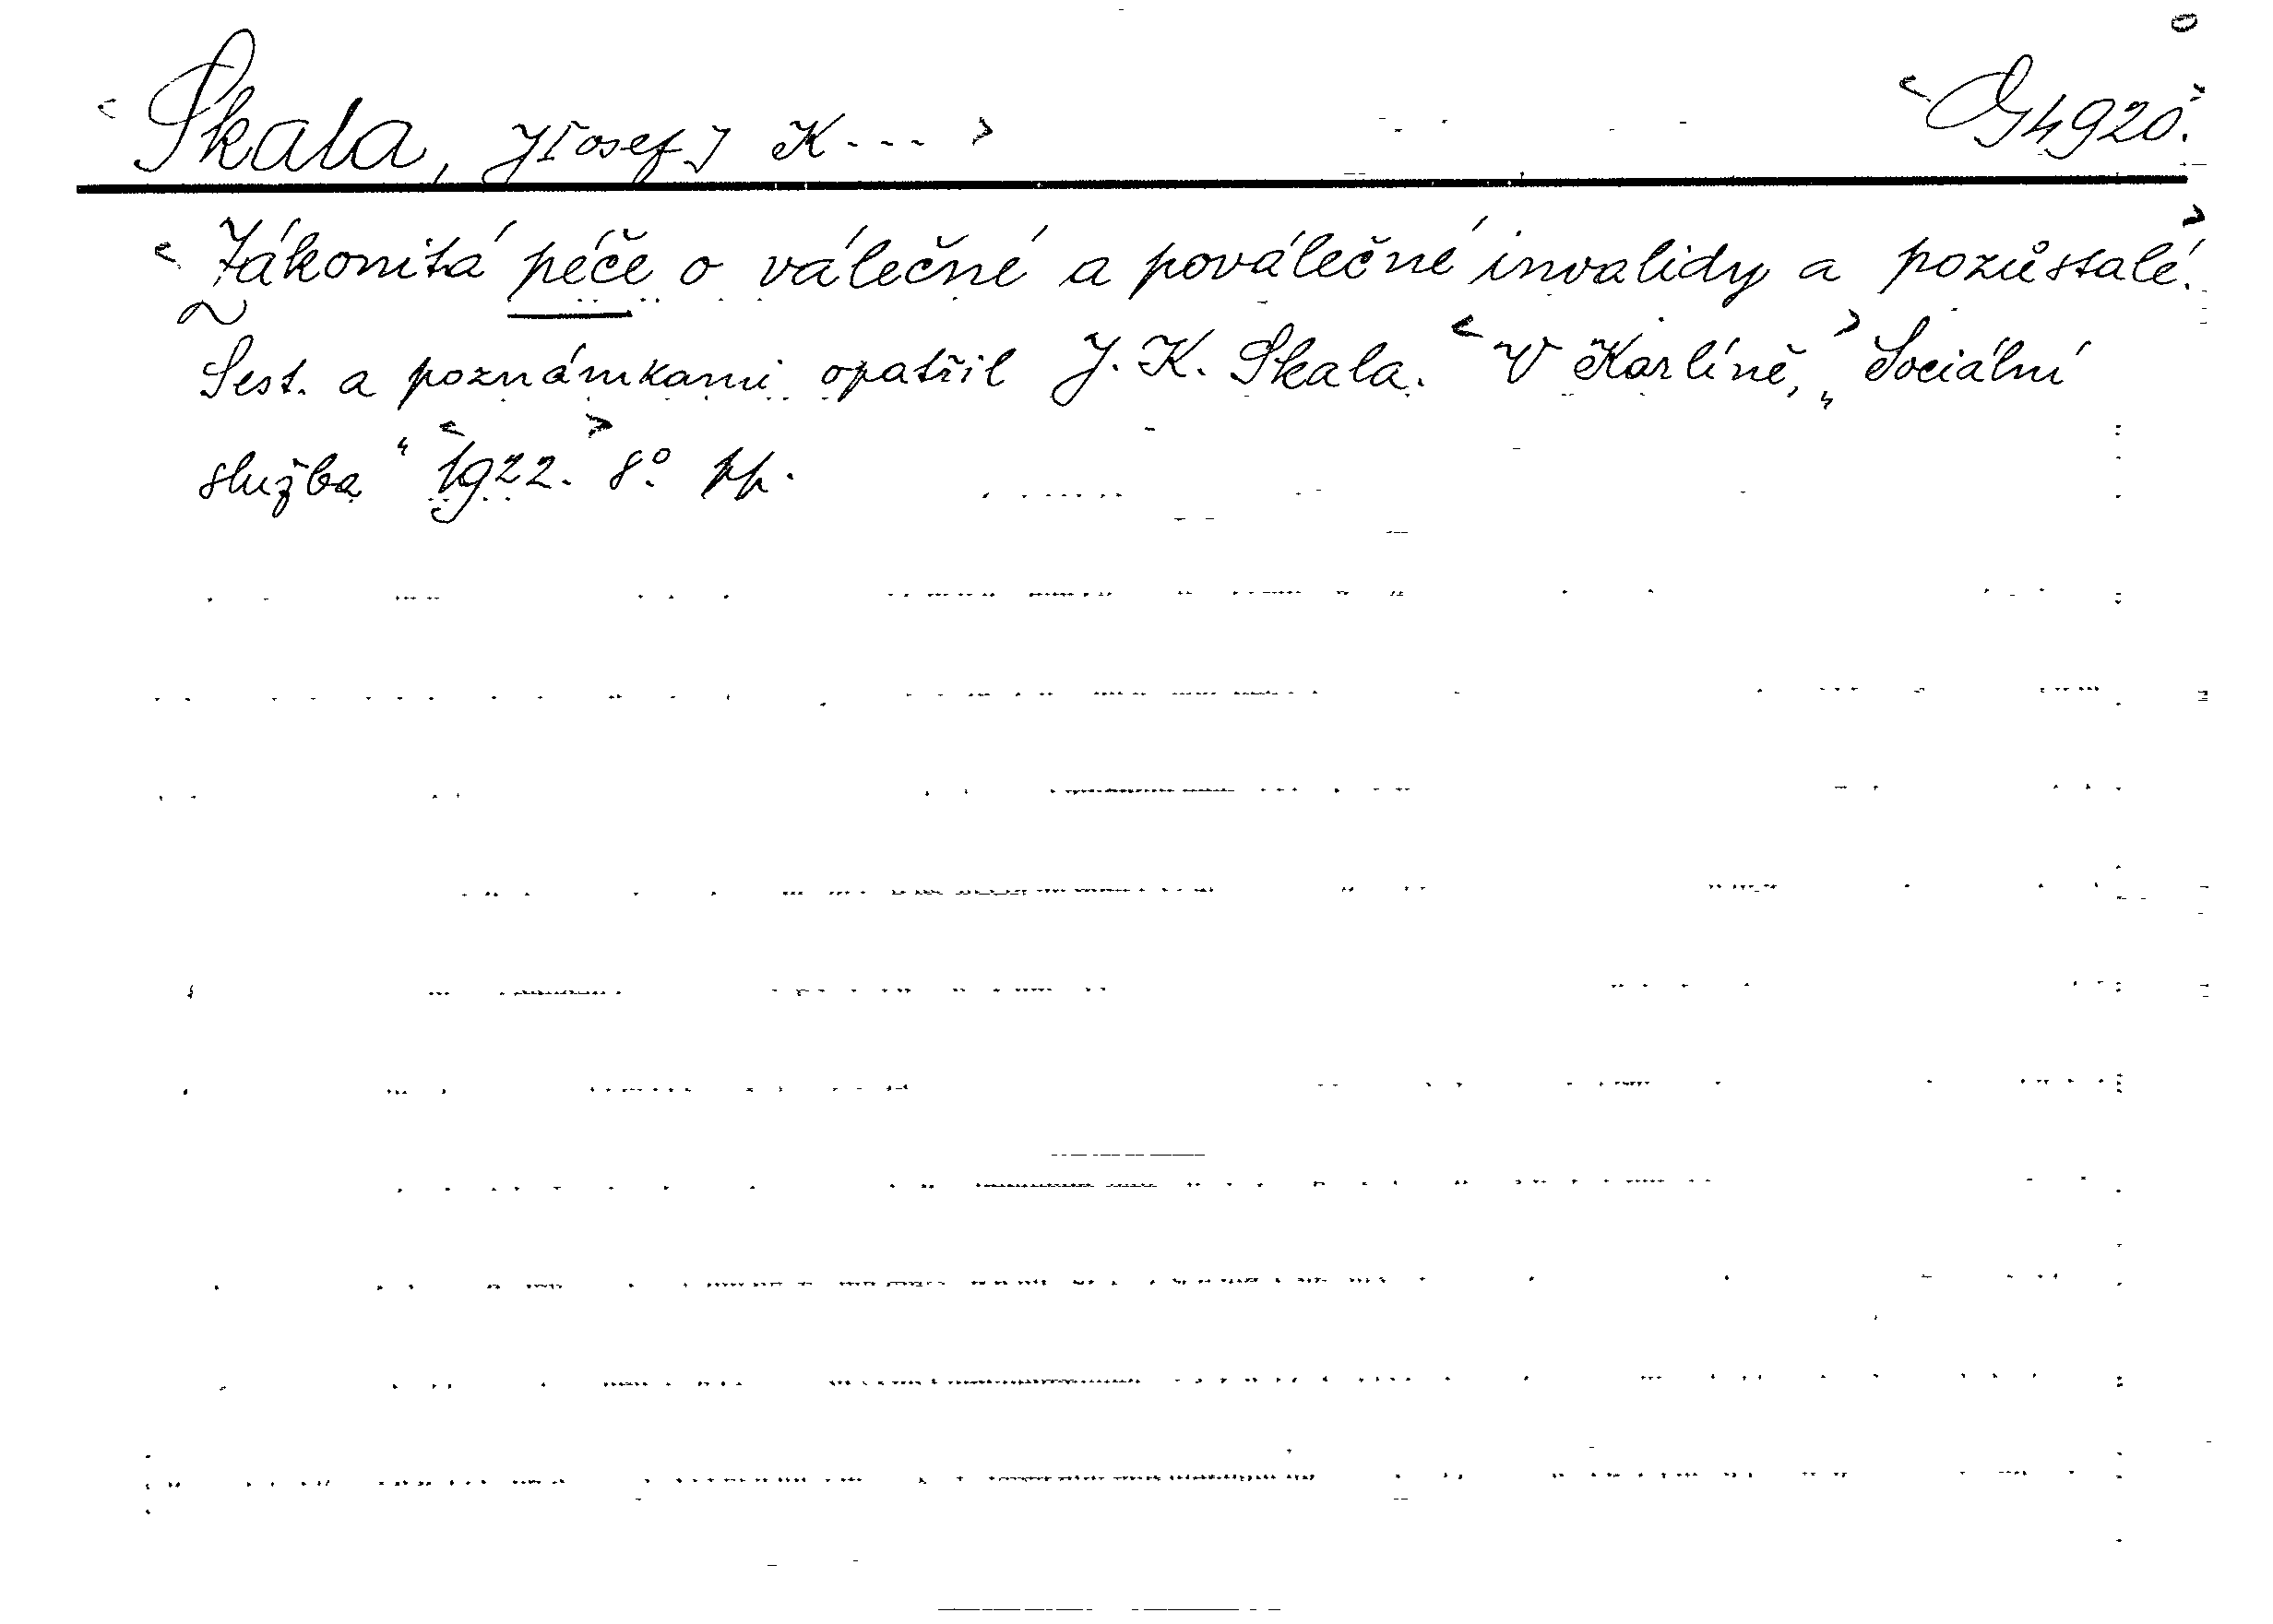 <Skala, J[osef] K...> <G 4920.>
<Zákonitá péče o válečné a poválečné invalidy a pozůstalé.>
Sest. a poznámkami opatřil J. K. Skala. <V Karlíně,> „Sociální
služba“ <1922.> 8°. pp.